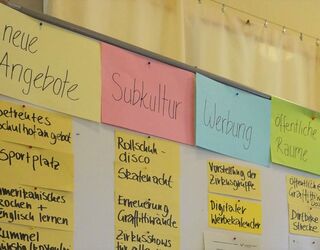 neue
Angebote
Subkultur
Werbung
öffentliche
Räume
betreutes
Schulhofangebot
Sportplatz
amerikanisches
kochen
englisch lernen
Rummel
Rollschuh-
disco
Skatenacht
Erneuerung
Graffitiwände
Zirkusshows
für alle
Vorstellung der
Zirkusgruppe
Digitaler
Werbekalender
öffentliche
Graffitti
Dirtbike
Strecke